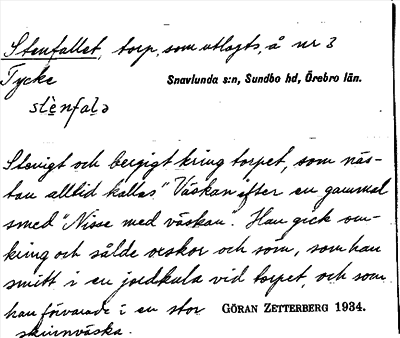 Stenfallet, torp, som utlagts, å nr 3
Tycke
Snavlunda s:n, Sundbo hd, Örebro län.
stènfalə
Stenigt och bergigt kring torpet, som näs-
tan alltid kallas "Väskan efter en gammal
smed "Nisse med väskan". Han gick om-
kring och sålde yxor och söm, som han
smitt i en jordkula vid torpet, och som
han förvarade i en stor
GÖRAN ZETTERBERG 1934.
skinnväska.